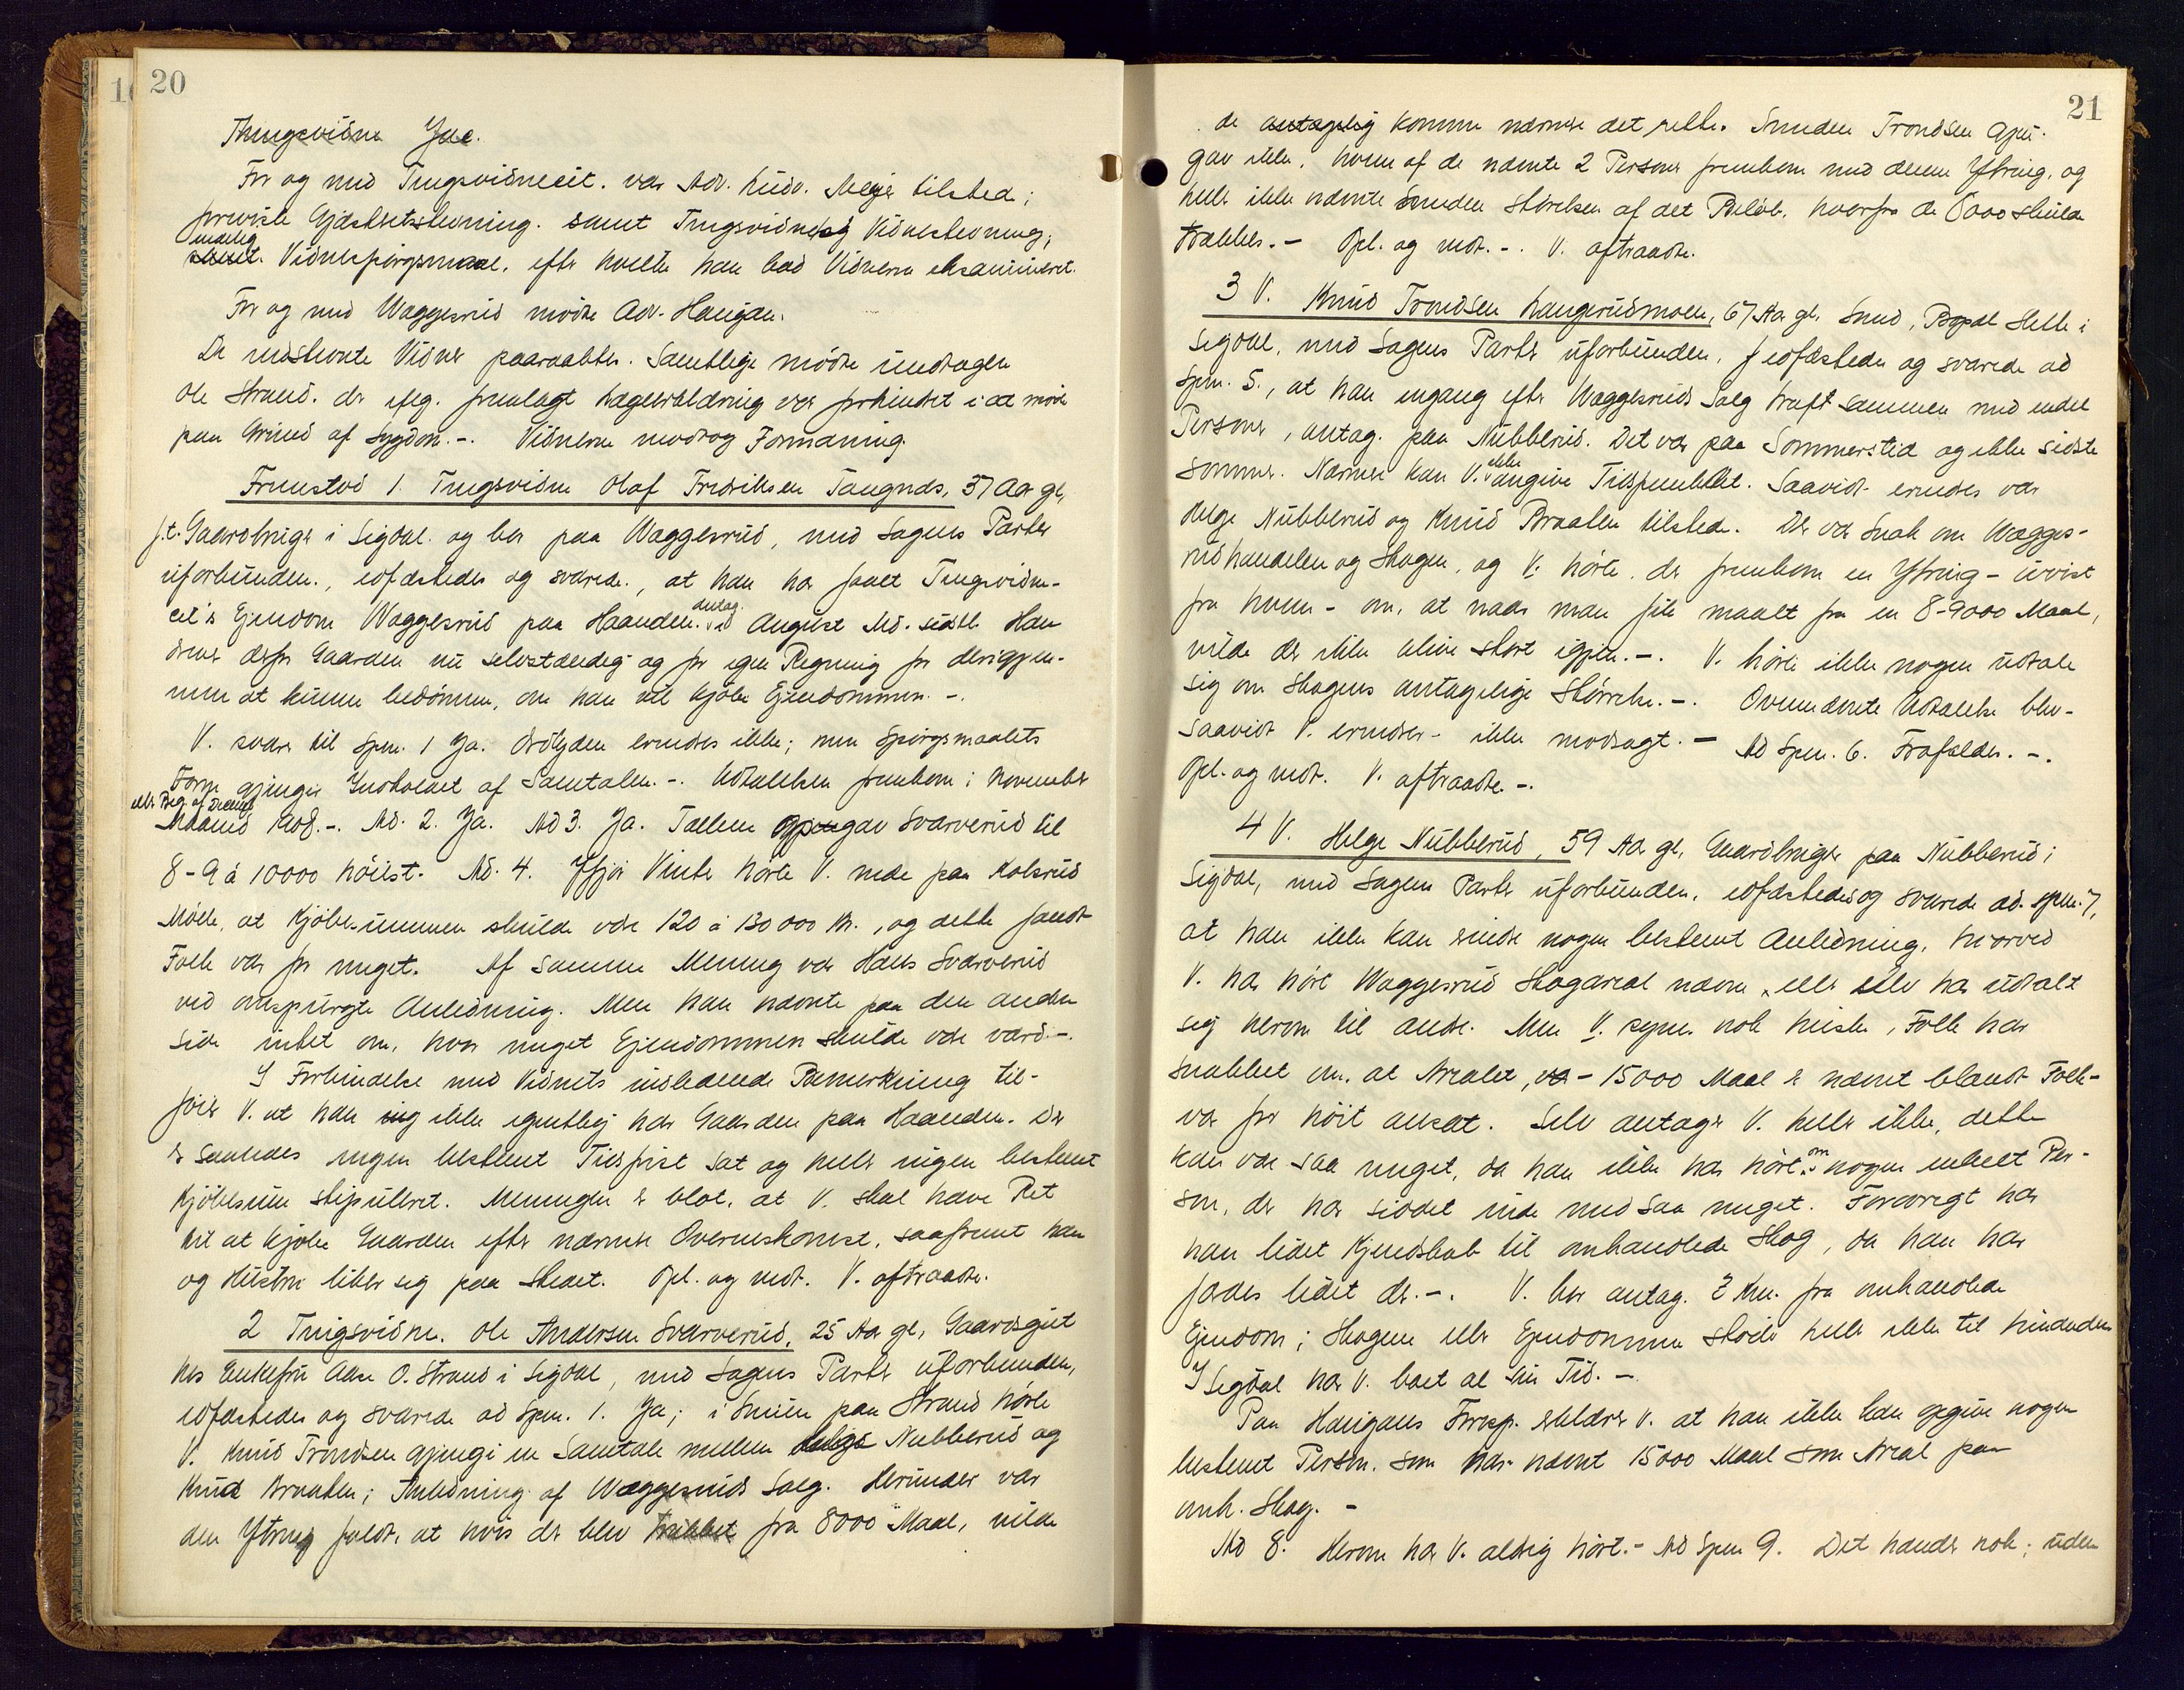 20
Thingsvidne Jue.
For og med Tingsvidnecit. var Adv. Ludv. Meyer tilstede;
foreviste Gjæsteretsstevning. samt Tingsvidne og Vidnestevning,
endelig
samt Vidnespørgsmaal, efter hvilke han bad Vidnerne eksamineret.
For og med Waggesrud mødte Adv. Haugan.
De indstevnte Vidner paaraabtes. Samtlige mødte undtagen
Ole Strand. der ifølg. fremlagt Lægeerklæring var forhindret i at møde
paa Grund af Sygdom. -. Vidnerne modtog Formaning.
Fremstod 1. Tingsvidne Olaf Fredriksen Tangnæs, 37 Aar gl.
f.t. Gaardbruger i Sigdal og bor paa Waggesrud, med Sagens Parter
uforbunden, edfæstedes og svarede, at han har faaet Tingsvidne-
cit's Ejendom Waggesrud paa Haanden antag. i August Md. sidstl. Han
driver derfor Gaarden nu selvstændig og for egen Regning for derigjen-
nem at kunne bedømme, om han vil kjøbe Ejendommen. -.
V. svarer til Spm. 1 Ja. Ordlyden erindres ikke; men Spørgsmaalets
Form gjengir Indholdet af Samtalen. -. Udtalelsen fremkom i November
eller Beg. af Decemb
Maaned 1908. -. Ad. 2. Ja. Ad 3. Ja. Tallene opgav Svarverud til
8-9 à 10000 høiist. Ad. 4. Ifjor Vinter hørte V. nede paa Kolsrud
Mølle, at Kjøbesummen skulde være 120 à 130 000 Kr., og dette fandt
Folk var for meget. Af samme Mening var Hans Svarverud
ved omspurgte Anledning. Men han nævnte paa den anden
Side intet om, hvor meget Ejendommen skulde være værd. -.
I Forbindelse med Vidnets indledende Bemerkning til-
føier V. at han sig ikke egentlig har Gaarden paa Haanden. Der
er saaledes ingen bestemt Tidsfrist sat og heller ingen bestemt
Kjøbesum stipuleret. Meningen er blot, at V. skal have Ret
til at kjøbe Gaarden efter nærmere Overenskomst, saafremt han
og Hustru liker sig paa Stedet. Opl. og vedt. V. aftraadte.
2 Tingsvidne. Ole Andersen Svarverud, 25 Aar gl, Gaardsgut
hos Enkefru Aase O. Strand i Sigdal, med Sagens Parter uforbunden,
edfæstedes og svarede ad Spm. 1. Ja; i Smien paa Strand hørte
V. Knud Trondsen gjengi en Samtale mellem Helge Nubberud og
Knud Braaten; Anledning af Waggesruds Salg. Herunder var
den Ytring faldt, at hvis der blev trukket fra 8000 Maal, vilde
21
de antagelig komme nærmere det rette. Smeden Trondsen opgav
gav ikke, hvem af de nævnte 2 Personer fremkom med denne Ytring, og
heller ikke nævnte Smeden Størelsen af det Beløb, hvorfra de 8000 skulde
trækkes. - Opl. og vedt. -. V. aftraadte.
3 V. Knud Trondsen Haugerudmoen, 67 Aar gl. Smed, Bopæl Skelle i
Sigdal, med Sagens Parter uforbunden, edfæstedes og svarede ad
Spm. 5., at han engang efter Waggesruds Salg traf sammen med endel
Personer, antag. paa Nubberud. Det var paa Sommerstid og ikke sidste
Sommer. Nærmere kan V. ikke angive Tidspunktet. Saavidt erindres var
Helge Nubberud og Knud Braaten tilstede. Der var Snak om Wagges-
rudhandelen og Skogen, og V. hørte, der fremkom en Ytring - uvist
fra hvem - om, at naar man fik maalt fra en 8-9000 Maal,
vilde der ikke blive stort igjen. -. V. hørte ikke nogen udtale
sig om Skogens antagelige Størrelse. -. Ovennævnte Udtalelse blev -
saavidt V. erindrer - ikke modsagt. - Ad Spm. 6. Frafaldes. -.
Opl. og vedt. V. aftraadte -.
4 V. Helge Nubberud, 59 Aar gl, Gaardbruger paa Nubberud i
Sigdal, med Sagens Parter uforbunden, edfæstedes og svarede ad. Spm. 7,
at han ikke kan erindre nogen bestemt Anledning, hvorved
V. har hørt Waggesrud Skogareal nævne, eller selv har udtalt
sig herom til andre. Men V. synes nok huske, Folk har
snakket om, at Arealet, - 15000 Maal er nævnt blandt Folk -
var for høit ansat. Selv antager V. heller ikke, dette
kan være saa meget, da han ikke har hørt om nogen enkelt Per-
son, der har siddet inde med saa meget. Forøvrigt har
han lidet Kjendskab til omhandlede Skog, da han har
færdes lidet der. -. V. bor antag. 2 Km. fra omhandlede
Ejendom; Skogene eller Ejendommene støder heller ikke til hinanden
I Sigdal har V. boet al sin Tid. -
Paa Haugans Foresp. erklærer V. at han ikke kan opgive nogen
bestemt Person, som har nævnt 15000 Maal som Areal paa
omh. Skog. -
Ad 8. Herom har V. aldrig hørt. - Ad Spm 9. Det hænder nok; uden